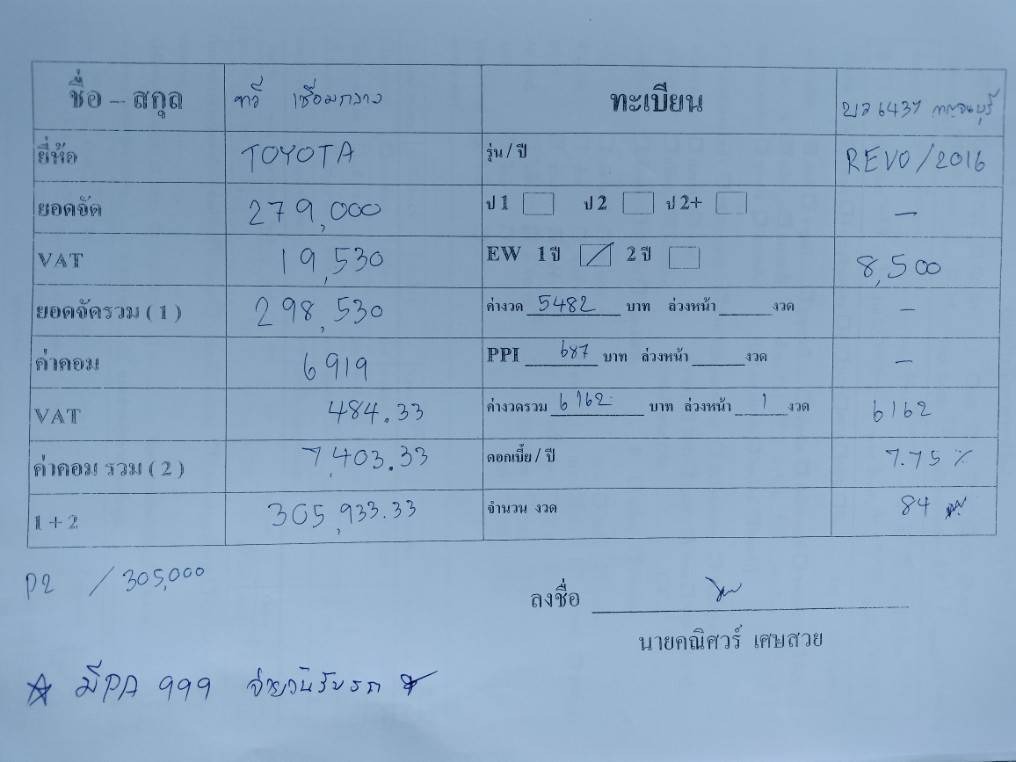 ชื่อ – สกุล ทวี เชื่อมกลาง ทะเบียน บล 6437 กาญจนบุรี
ยี่ห้อ TOYOTA รุ่น / ปี REVO / 2016
ยอดจัด 279,000 ป 1 ป 2 ป 2+ –
VAT 19,530 EW 1 ปี 2 ปี 8,500
ยอดจัดรวม ( 1 ) 298,530 ค่างวด 5482 บาท ล่วงหน้า งวด –
ค่าคอม 6919 PPI 687 บาท ล่วงหน้า งวด –
VAT 484.33 ค่างวดรวม 6162 บาท ล่วงหน้า 1 งวด 6162
ค่าคอม รวม ( 2 ) 7,403.33 ดอกเบี้ย / ปี 7.75 %
1 + 2 305,933.33 จำนวน งวด 84
P2 / 305,000
ลงชื่อ
นายคณิศวร์ เศษสวย
มี PA 999 จ่ายวันรับรถ